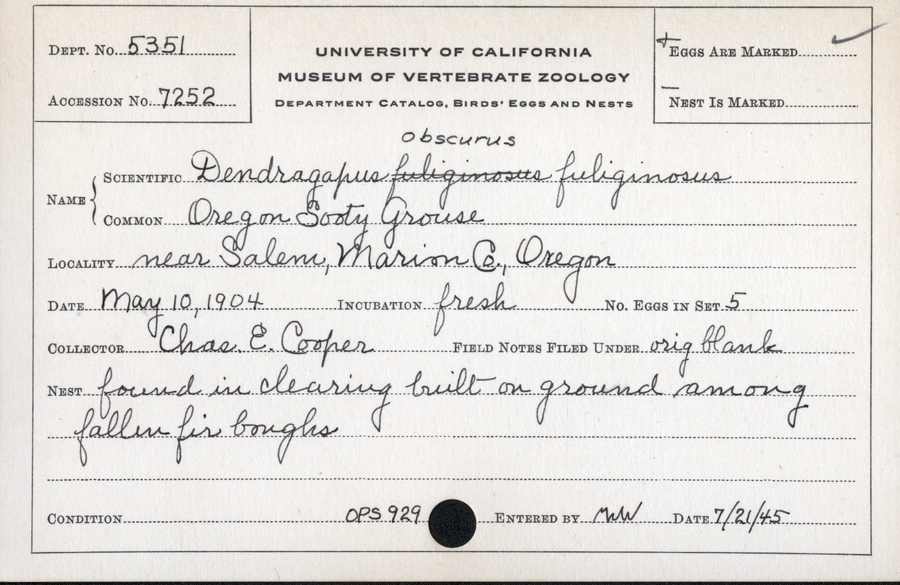 DEPT. NO. 5351
ACCESSION NO. 7252
UNIVERSITY OF CALIFORNIA
MUSEUM OF VERTEBRATE ZOOLOGY
DEPARTMENT CATALOG, BIRDS' EGGS AND NESTS
+ EGGS ARE MARKED ✓
— NEST IS MARKED
obscurus
NAME { SCIENTIFIC Dendragapus fuliginosus fuliginosus
COMMON Oregon Sooty Grouse
LOCALITY near Salem, Marion Co., Oregon
DATE May 10, 1904 INCUBATION fresh NO. EGGS IN SET 5
COLLECTOR Chas. E. Cooper FIELD NOTES FILED UNDER orig blank
NEST found in clearing built on ground among
fallen fir boughs
CONDITION OPS 929 ENTERED BY DATE 7/21/45